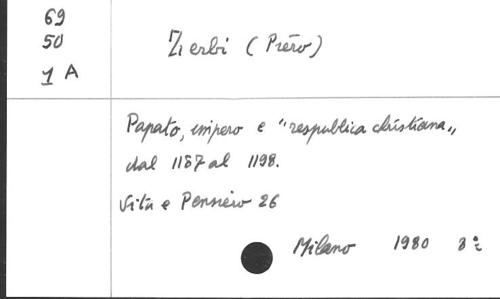 69
50
1 A
Zerbi (Piéro)
Papato, impero e "respublica christiana"
dal 1187 al 1198.
Vita e Pensiéro 26
Milano 1980 8°